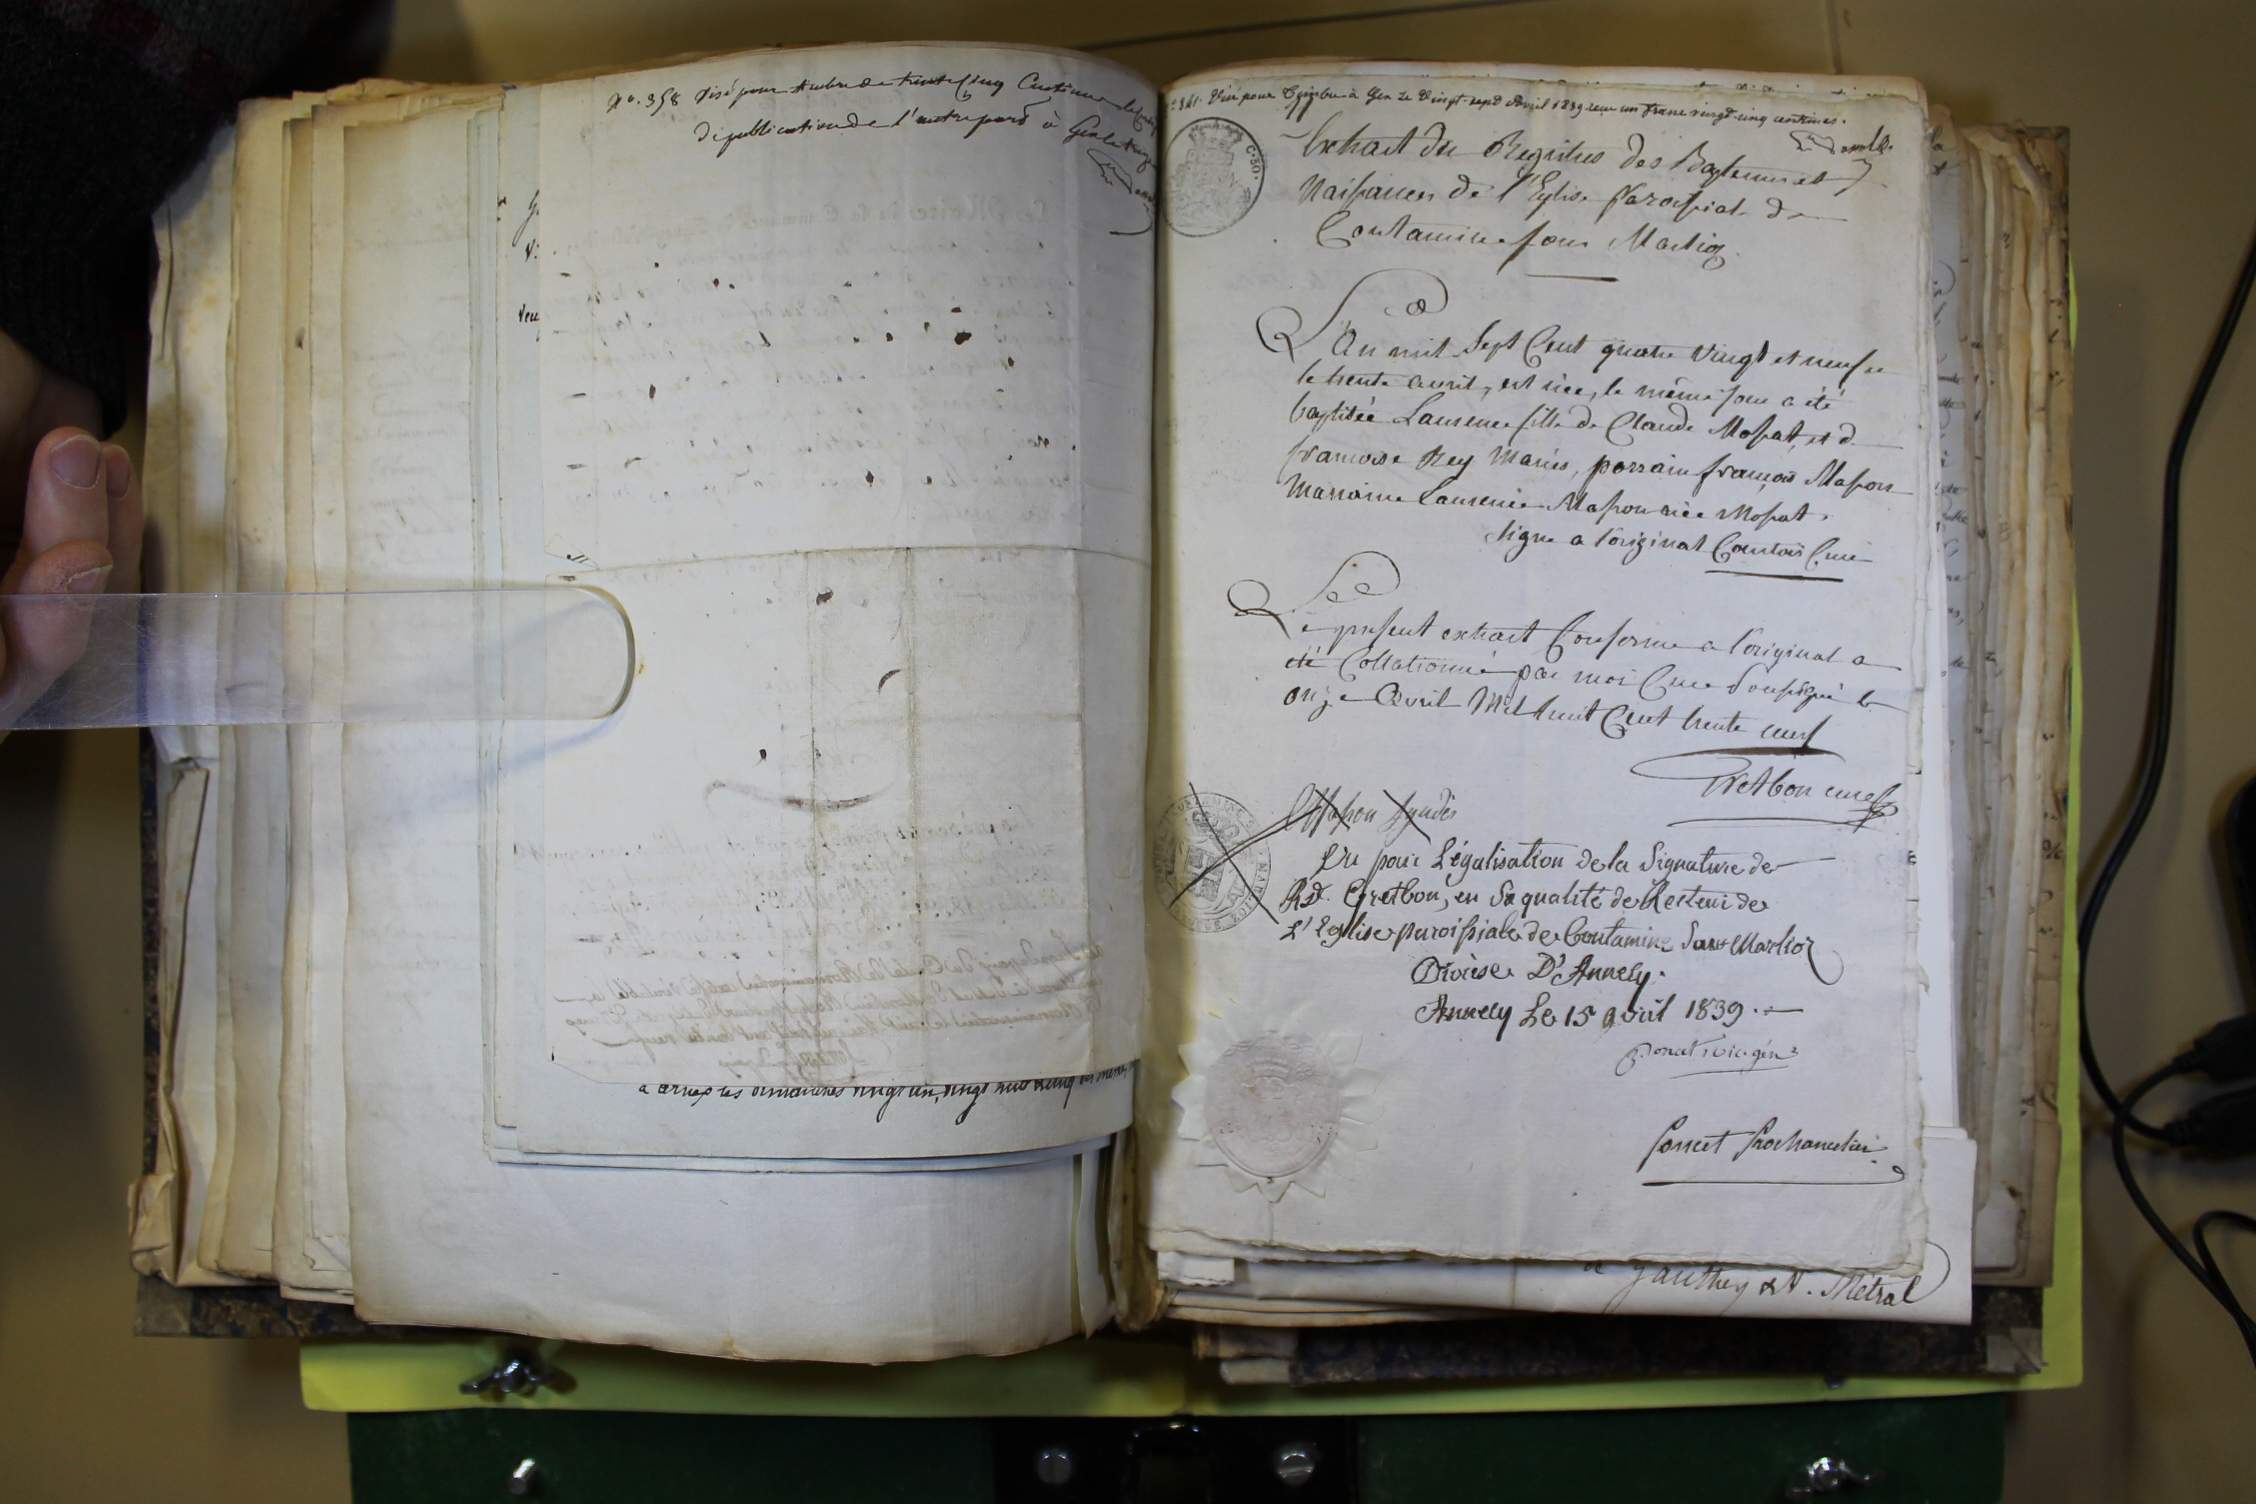 N°. 358 Visé pour timbre de trente cinq Centimes
de publication de l'autre part à Gex le
a ornex les dimanches vingt un, vingt huit
361. Visé pour Timbre à Gex le Vingt sept Avril 1839 reçu un franc vingt cinq centimes.
C. 30.
Extrait du Registres des Baptemes et
Naissances de l'Eglise Paroissial de
Contamine sous Marlioz
L'An mil Sept Cent quatre Vingt et neuf
le trente avril, est née, le même jour a été
baptisée Laurence fille de Claude Mossat, et de
francoise Rey Mariés, parrain françois Masson
Marraine Laurence Masson née Mossat.
Signe a l'original Contois Curé
Le présent extrait Conforme a l'original a
été Collationné par moi Curé Soussigné le
onze Avril Mil huit Cent trente neuf
Pretbon curé
Masson Syndic
Vu pour Légalisation de la Signature de
Rd. Pretbon, en Sa qualité de Recteur de
L'Eglise paroissiale de Contamine Sous Marlioz
Diocèse D'Annecy.
Annecy Le 15 avril 1839.
Poncet vic. gén.
Poncet Prochancelier
de Gauthey & V. Métral